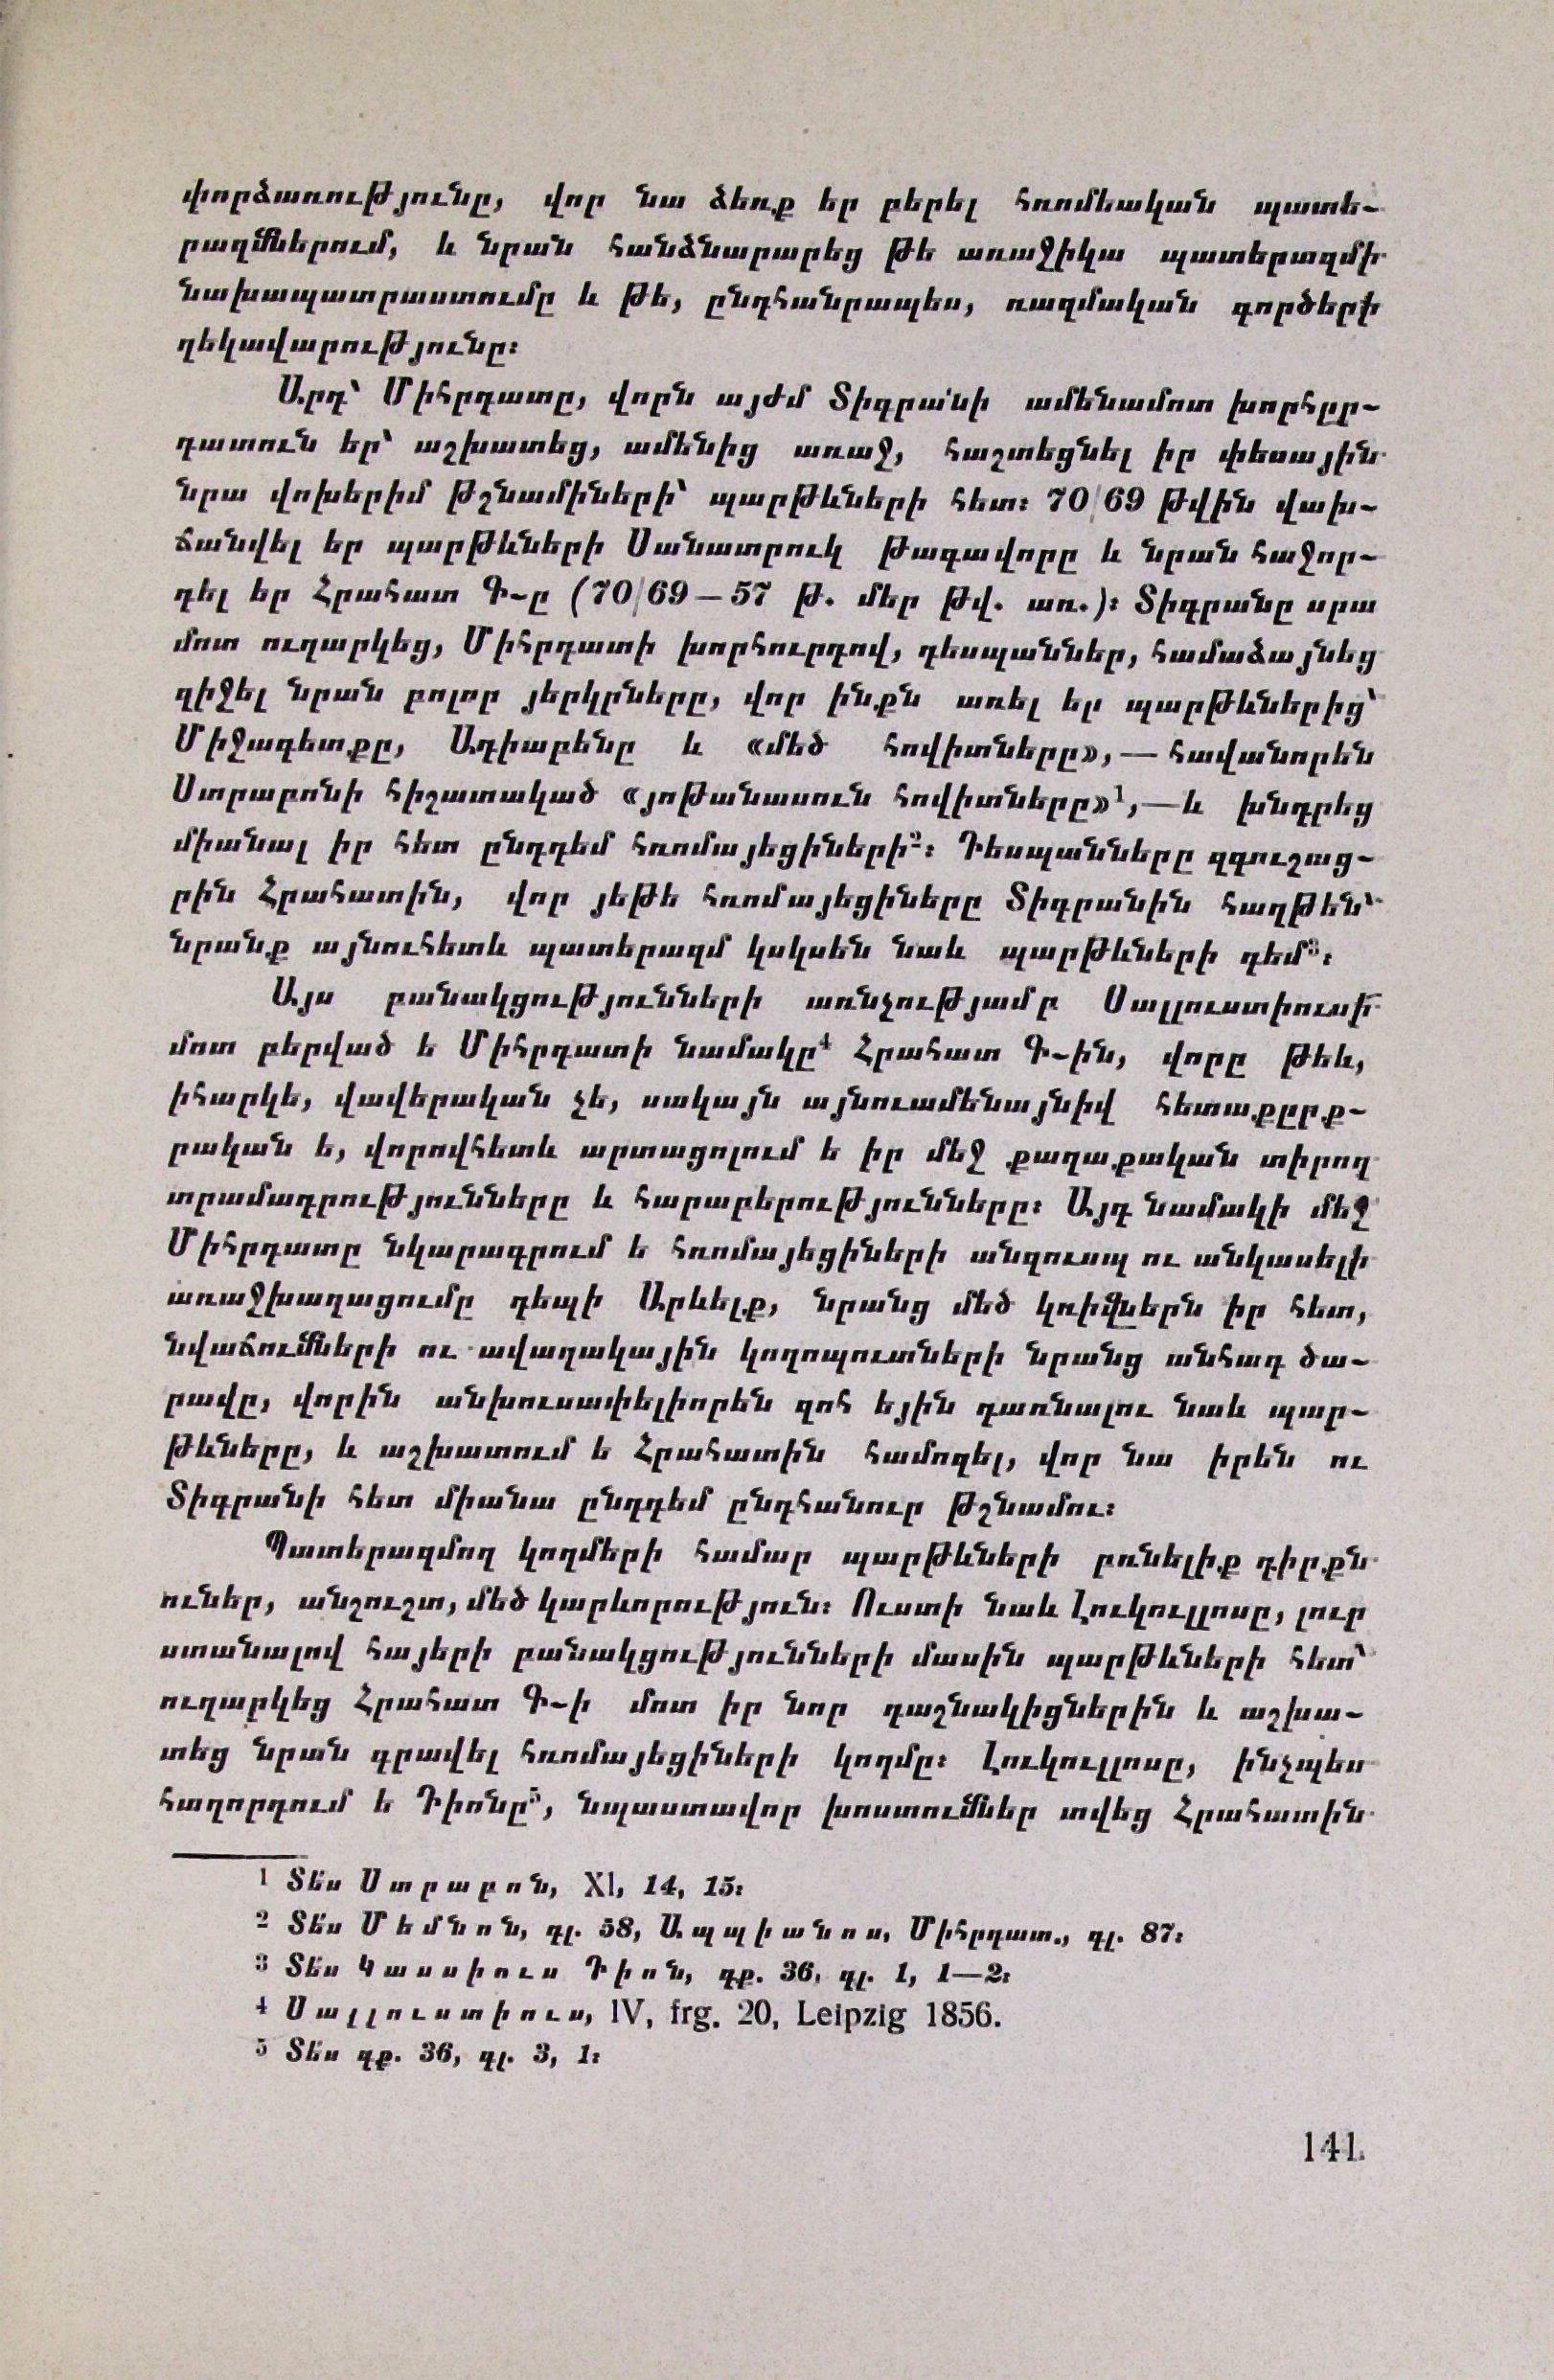 փորձառությունը, վոր նա ձեռք եր բերել հռոմեական պատե-
րազմներում, և նրան հանձնարարեց թե առաջիկա պատերազմի
նախապատրաստումը և թե, ընդհանրապես, ռազմական գործերի
ղեկավարությունը։
Արդ՝ Միհրդատը, վորն այժմ Տիգրանի ամենամոտ խորհըր-
դատուն եր՝ աշխատեց, ամենից առաջ, հաշտեցնել իր փեսային
նրա վոխերիմ թշնամիների՝ պարթևների հետ։ 70/69 թվին վախ-
ճանվել եր պարթևների Սանատրուկ թագավորը և նրան հաջոր-
դել եր Հրահատ Գ-ը (70/69—57 թ. մեր թվ. առ.)։ Տիգրանը սրա
մոտ ուղարկեց, Միհրդատի խորհուրդով, դեսպաններ, համաձայնեց
զիջել նրան բոլոր յերկրները, վոր ինքն առել եր պարթևներից՝
Միջագետքը, Ադիաբենը և «մեծ հովիտները»,— հավանորեն
Ստրաբոնի հիշատակած «յոթանասուն հովիտները»¹,—և խնդրեց
միանալ իր հետ ընդդեմ հռոմայեցիների²։ Դեսպանները զգուշաց-
րին Հրահատին, վոր յեթե հռոմայեցիները Տիգրանին հաղթեն՝
նրանք այնուհետև պատերազմ կսկսեն նաև պարթևների դեմ³։
Այս բանակցությունների առնչությամբ Սալլուստիուսի
մոտ բերված ե Միհրդատի նամակը⁴ Հրահատ Գ-ին, վորը թեև,
իհարկե, վավերական չե, սակայն այնուամենայնիվ հետաքըրք-
րական ե, վորովհետև արտացոլում ե իր մեջ քաղաքական տիրող
տրամադրությունները և հարաբերությունները։ Այդ նամակի մեջ
Միհրդատը նկարագրում ե հռոմայեցիների անզուսպ ու անկասելի
առաջխաղացումը դեպի Արևելք, նրանց մեծ կռիվներն իր հետ,
նվաճումների ու ավազակային կողոպուտների նրանց անհագ ծա-
րավը, վորին անխուսափելիորեն զոհ եյին դառնալու նաև պար-
թևները, և աշխատում ե Հրահատին համոզել, վոր նա իրեն ու
Տիգրանի հետ միանա ընդդեմ ընդհանուր թշնամու։
Պատերազմող կողմերի համար պարթևների բռնելիք դիրքն
ուներ, անշուշտ, մեծ կարևորություն։ Ուստի նաև Լուկուլլոսը, լուր
ստանալով հայերի բանակցությունների մասին պարթևների հետ՝
ուղարկեց Հրահատ Գ-ի մոտ իր նոր դաշնակիցներին և աշխա-
տեց նրան գրավել հռոմայեցիների կողմը։ Լուկուլլոսը, ինչպես
հաղորդում ե Դիոնը⁵, նպաստավոր խոստումներ տվեց Հրահատին
¹ Տե՛ս Ստրաբոն, XI, 14, 15։
² Տե՛ս Մեմնոն, գլ. 58, Ապպիանոս, Միհրդատ., գլ. 87։
³ Տե՛ս Կասսիուս Դիոն, գք. 36, գլ. 1, 1—2։
⁴ Սալլուստիուս, IV, frg. 20, Leipzig 1856.
⁵ Տե՛ս գք. 36, գլ. 3, 1։
141